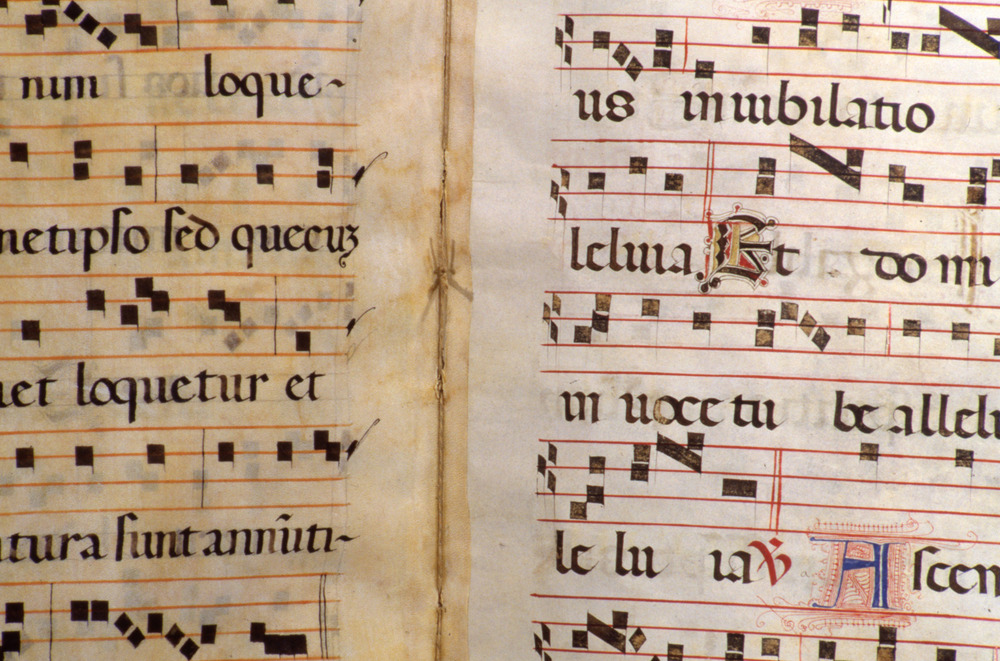 nim loque-
metipso sed quecuz
et loquetur et
tura sunt annūti-
us in iubilatio
leluia Et do mi
in uoce tu be allelu
le lu ia V Ascen